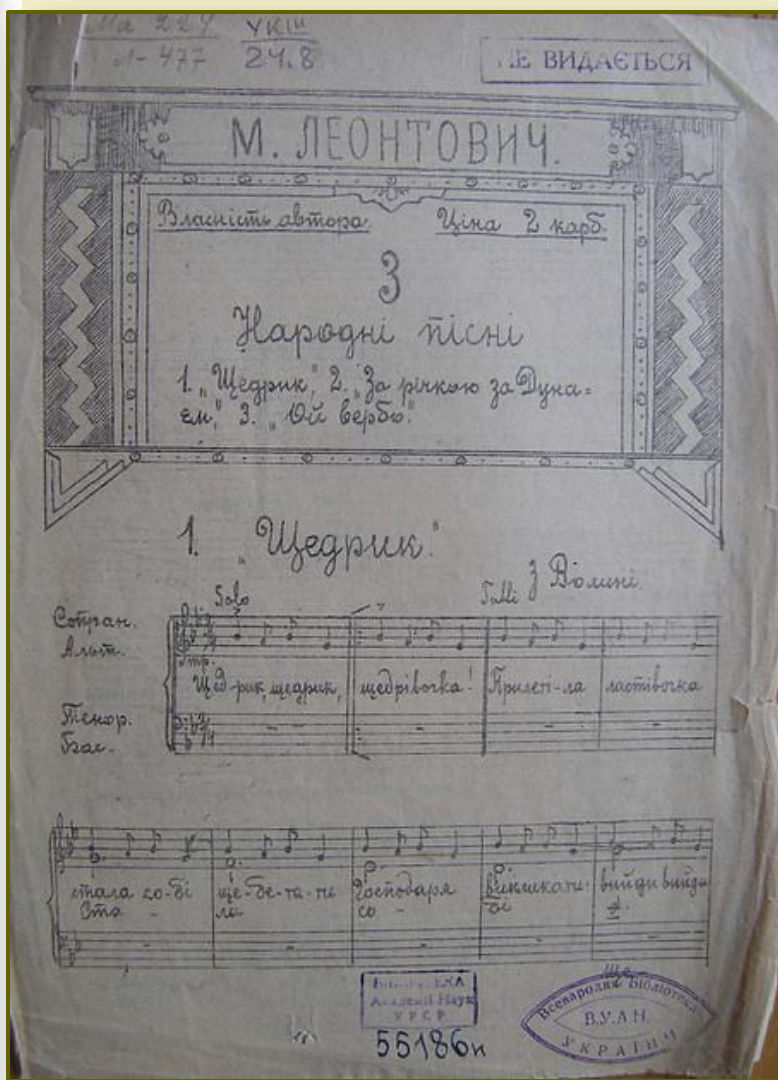 Ма 224 УКІШ
А-477 24.8
НЕ ВИДАЄТЬСЯ
М. ЛЕОНТОВИЧ.
Власність автора. Ціна 2 карб.
3
Народні пісні
1. „Щедрик", 2. „За річкою за Дуна=
єм," 3. „Ой вербо."
1. „Щедрик."
З Волині.
Solo Tutti
Сопран.
Альт.
Щед-рик, щедрик, щедрівочка! Прилеті-ла ластівочка
Тенор.
Бас.
стала со-бі ще-бе-та-ти Господаря викликати: вийди вийди
Ста - ла со - бі
ще
БІБЛІОТЕКА
Академії Наук
УРСР
55186н
Всенародня Бібліотека
В.У.А.Н.
УКРАЇНИ